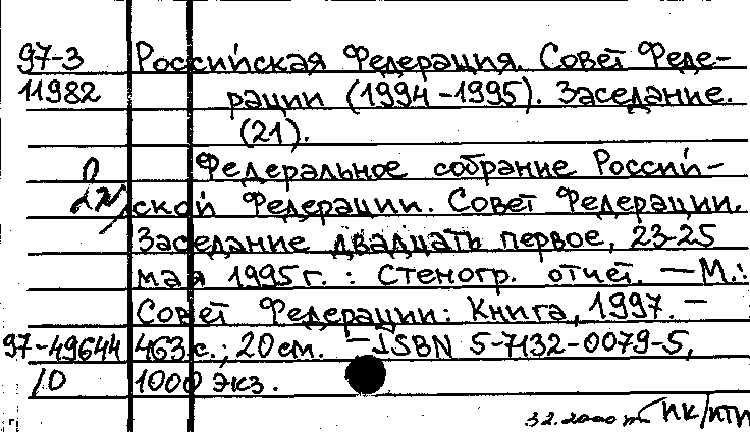 97-3 Российская Федерация. Совет Феде-
11982 рации (1994-1995). Заседание.
(21).
Федеральное собрание Россий-
ской Федерации. Совет Федерации.
Заседание двадцать первое, 23-25
мая 1995г. : Стеногр. отчет. — М.:
Совет Федерации: Книга, 1997. —
97-49644 463с.; 20см. — ISBN 5-7132-0079-5,
10 1000 экз.